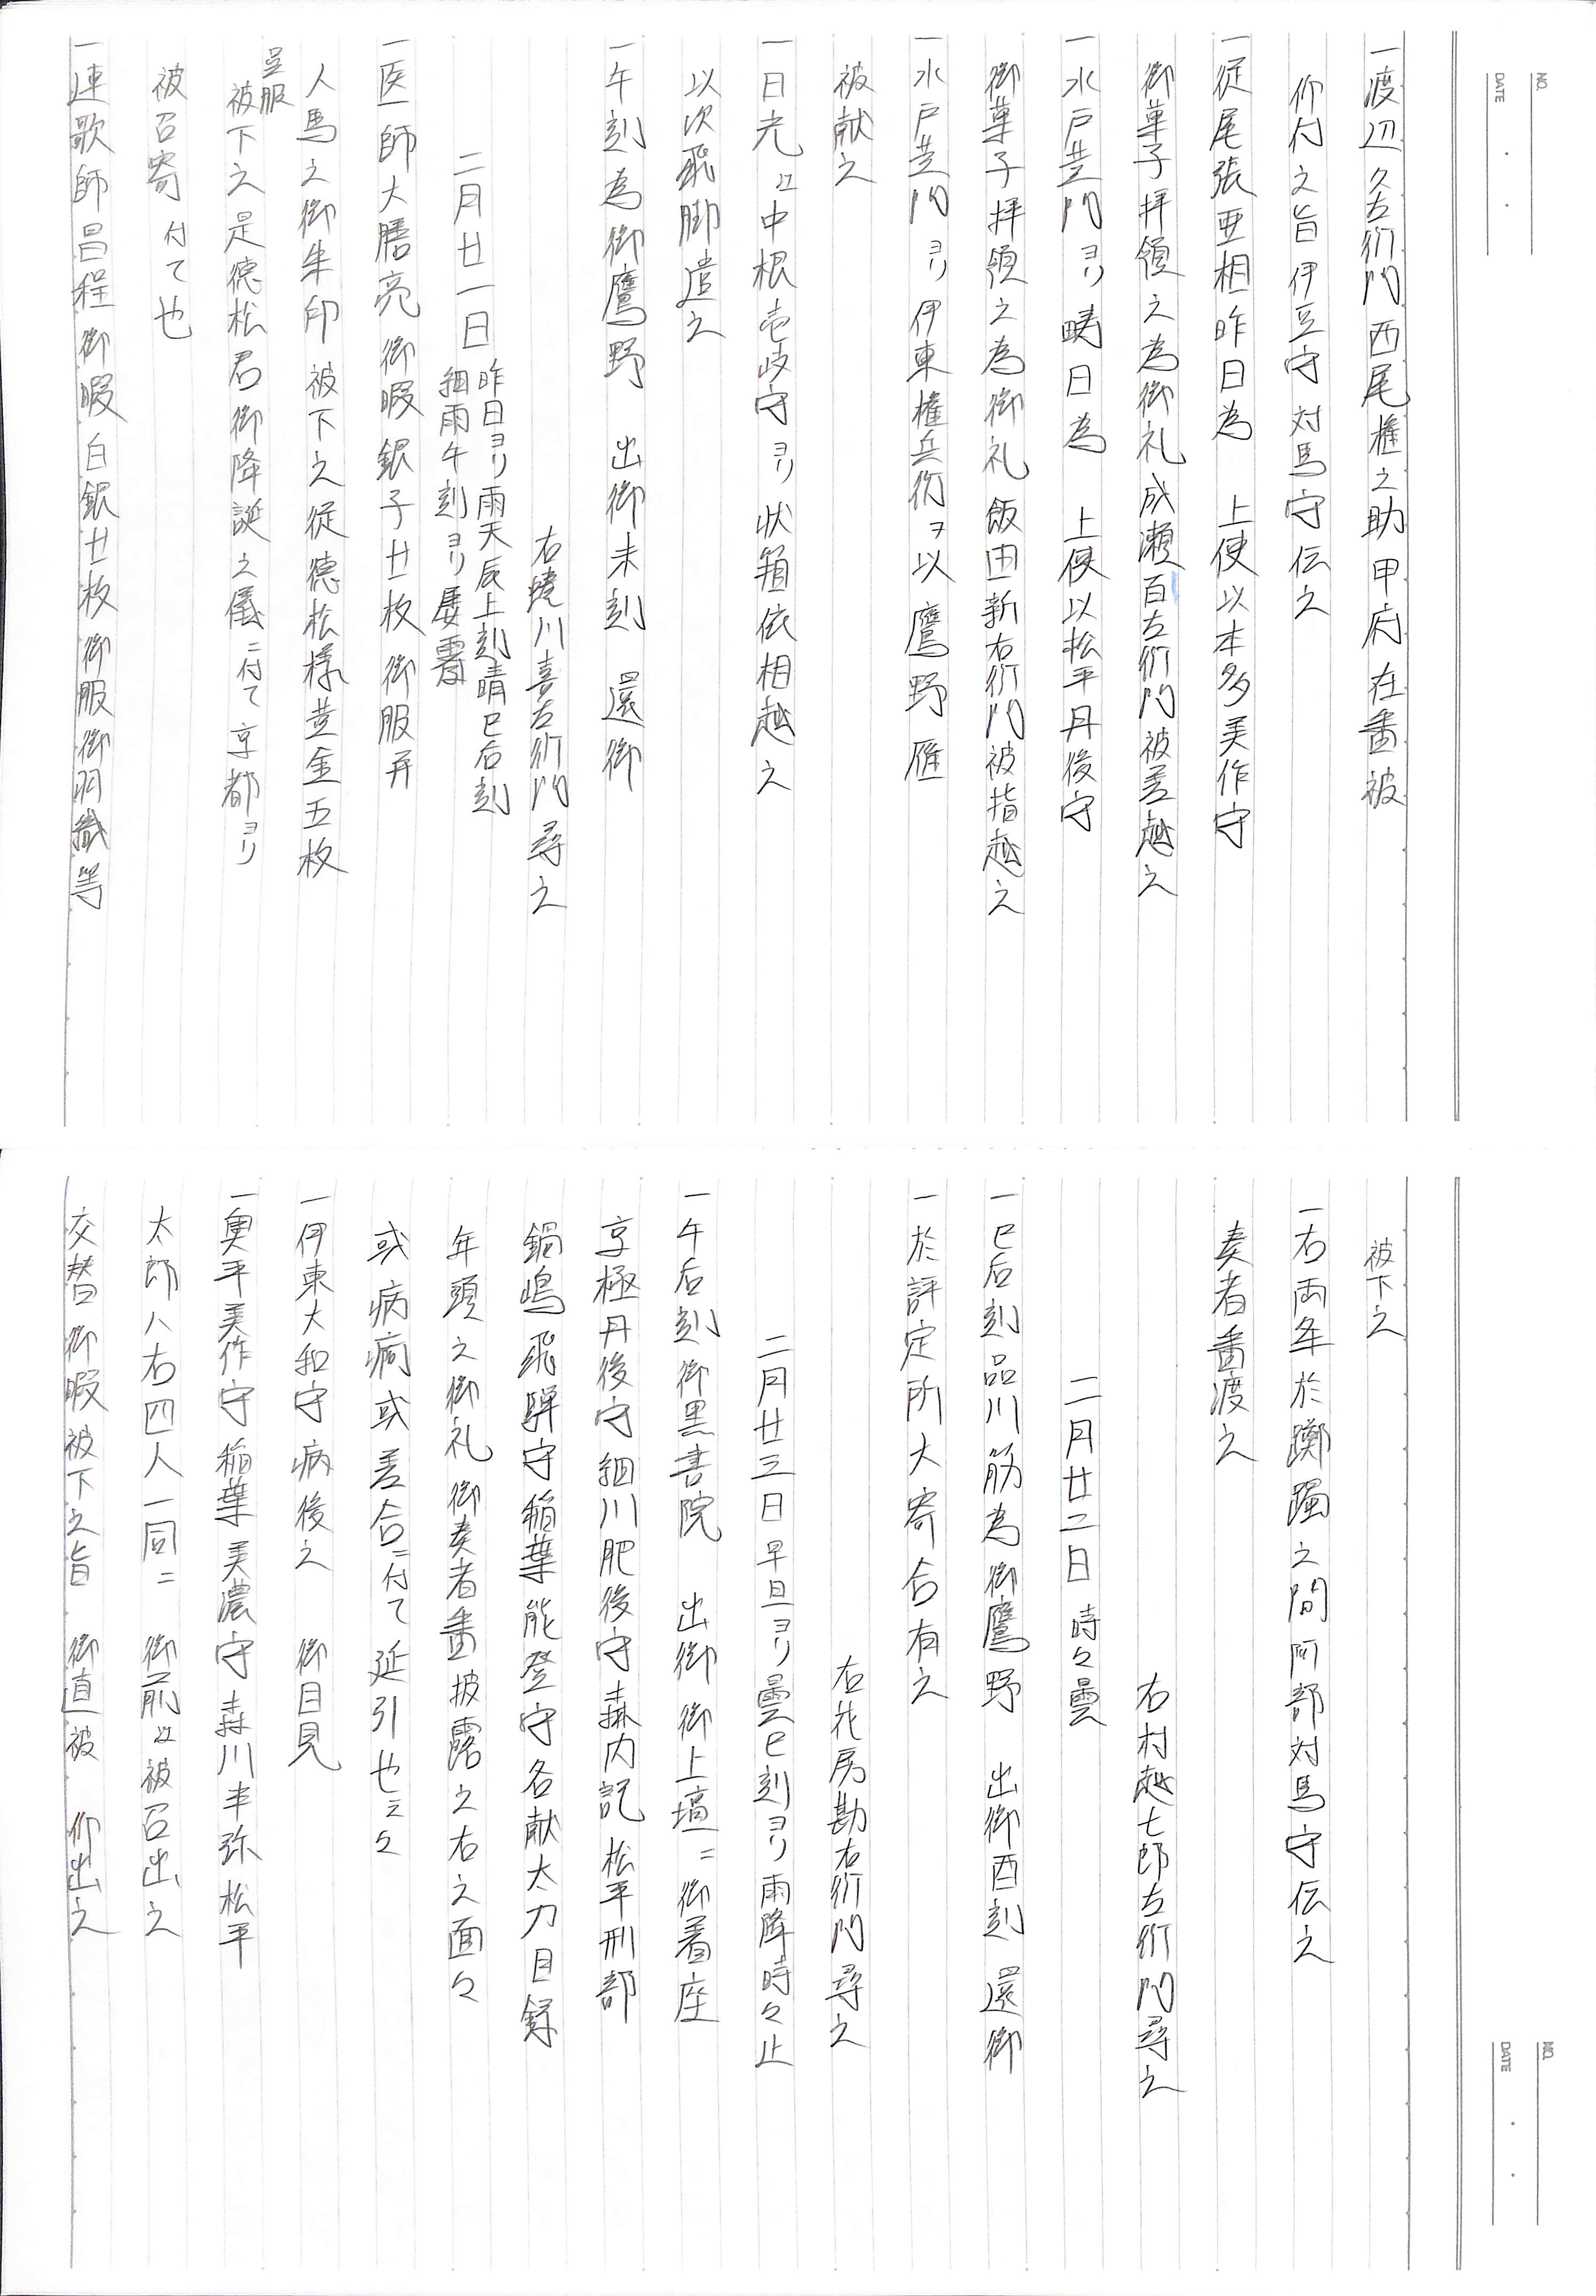 NO.
DATE
一渡辺久右衛門西尾権之助甲府在番被
仰付之旨伊豆守対馬守伝之
一従尾張亜相昨日為　上使以本多美作守
御菓子拝領之為御礼成瀬百左衛門被差越之
一水戸黄門ヨリ疇日為　上使以松平丹後守
御菓子拝領之為御礼飯田新右衛門被指越之
一水戸黄門ヨリ伊東権兵衛ヲ以鷹野雁
被献之
一日光ゟ中根壱岐守ヨリ状箱依相越之
以次飛脚遣之
一午刻為御鷹野　出御未刻　還御
右蜷川喜左衛門尋之
二月廿一日　昨日ヨリ雨天辰上刻晴巳后刻
細雨午刻ヨリ屡霽
一医師大膳亮御暇銀子廿枚御服并
人馬之御朱印被下之従徳松様黄金五枚
呉服
被下之是徳松君御降誕之儀ニ付て京都ヨリ
被召寄付て也
一連歌師昌程御暇白銀廿枚御服御羽織等
NO.
DATE
被下之
一右両条於躑躅之間阿部対馬守伝之
奏者番渡之
右村越七郎左衛門尋之
二月廿二日　時々曇
一巳后刻品川筋為御鷹野　出御酉刻　還御
一於評定所大寄合有之
右花房勘右衛門尋之
二月廿三日　早旦ヨリ曇巳刻ヨリ雨降時々止
一午后刻御黒書院　出御御上壇ニ御着座
京極丹後守細川肥後守森内記松平刑部
鍋嶋飛騨守稲葉能登守各献太刀目録
年頭之御礼御奏者番披露之右之面々
或病痾或差合ニ付て延引也云々
一伊東大和守病後之　御目見
一奥平美作守稲葉美濃守森川半弥松平
太郎八右四人一同ニ　御前ゟ被召出之
交替御暇被下之旨　御直被　仰出之